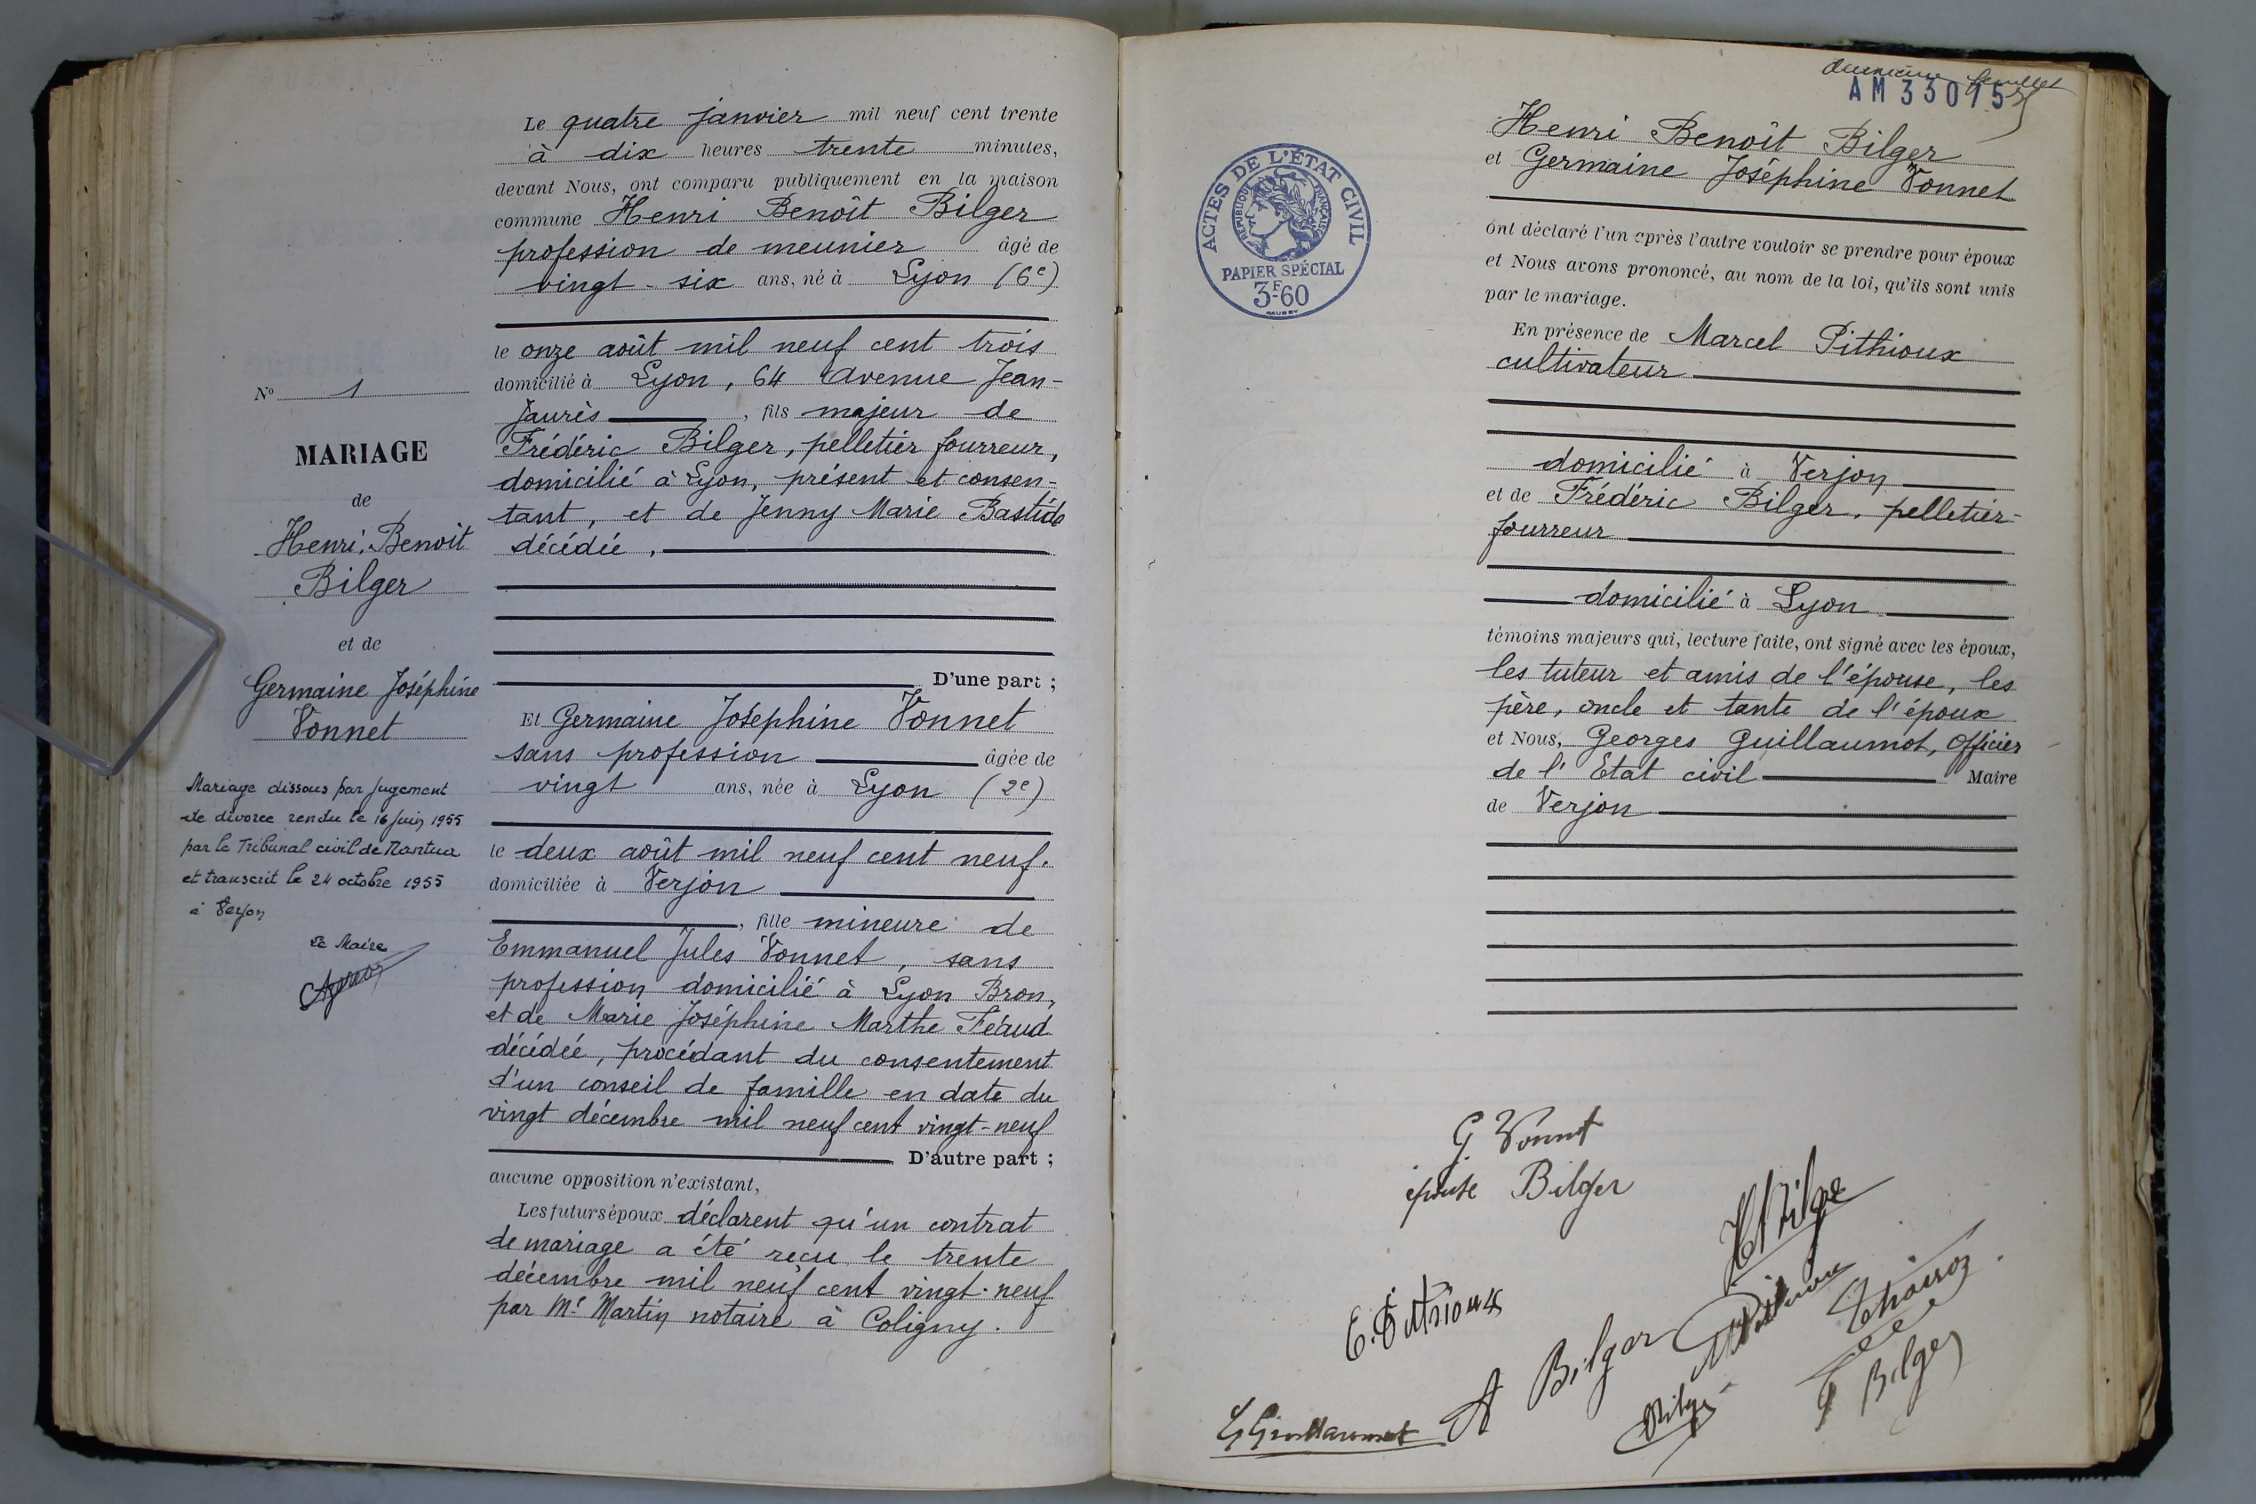 Le quatre janvier mil neuf cent trente
à dix heures trente minutes,
devant Nous, ont comparu publiquement en la maison
commune Henri Benoît Bilger
profession de meunier âgé de
vingt-six ans, né à Lyon (6e)
le onze août mil neuf cent trois
domicilié à Lyon, 64 Avenue Jean-
Jaurès, fils majeur de
Frédéric Bilger, pelletier fourreur,
domicilié à Lyon, présent et consen-
tant, et de Jenny Marie Bastide
décédée,
D'une part ;
Et Germaine Joséphine Vonnet
sans profession âgée de
vingt ans, née à Lyon (2e)
le deux août mil neuf cent neuf.
domiciliée à Verjon
, fille mineure de
Emmanuel Jules Vonnet, sans
profession domicilié à Lyon Bron,
et de Marie Joséphine Marthe Féaud
décédée, procédant du consentement
d'un conseil de famille en date du
vingt décembre mil neuf cent vingt-neuf
D'autre part ;
aucune opposition n'existant,
Les futurs époux déclarent qu'un contrat
de mariage a été reçu le trente
décembre mil neuf cent vingt-neuf
par Me Martin notaire à Coligny.
No 1
MARIAGE
de
Henri, Benoit
Bilger
et de
Germaine Joséphine
Vonnet
Mariage dissous par jugement
de divorce rendu le 16 juin 1955
par le Tribunal civil de Nantua
et transcrit le 24 octobre 1955
à Verjon
Le Maire
feuillet
AM 33015
ACTES DE L'ÉTAT CIVIL
RÉPUBLIQUE FRANÇAISE
PAPIER SPÉCIAL
3F60
Henri Benoît Bilger
et Germaine Joséphine Vonnet
ont déclaré l'un après l'autre vouloir se prendre pour époux
et Nous avons prononcé, au nom de la loi, qu'ils sont unis
par le mariage.
En présence de Marcel Pithioux
cultivateur
domicilié à Verjon
et de Frédéric Bilger, pelletier-
fourreur
domicilié à Lyon
témoins majeurs qui, lecture faite, ont signé avec les époux,
les tuteur et amis de l'épouse, les
père, oncle et tante de l'époux
et Nous, Georges Guillaumot, Officier
de l'Etat civil Maire
de Verjon
G. Vonnet
épouse Bilger
H Bilger
E. Pithioux
A Bilger
Bilger
F Bilger
G Guillaumot